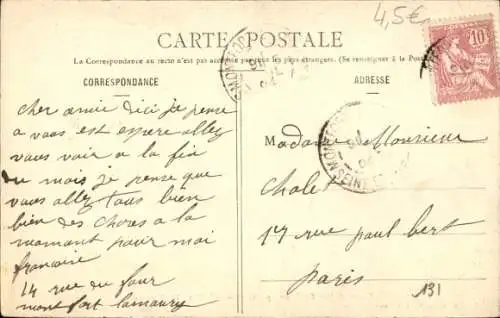 4,5€
CARTE POSTALE
La Correspondance au recto n'est pas acceptée par tous les pays étrangers. (Se renseigner à la Poste
CORRESPONDANCE
ADRESSE
10
cher amie dici je pense
a vous est espere allez
vous voir a la fin
du mois je pense que
vous allez tous bien
bien des choses a la
maman pour moi
francoise
14 rue du four
montfort lamaury
Madame Monsieur
Cholet
17 rue paul bert
paris
131